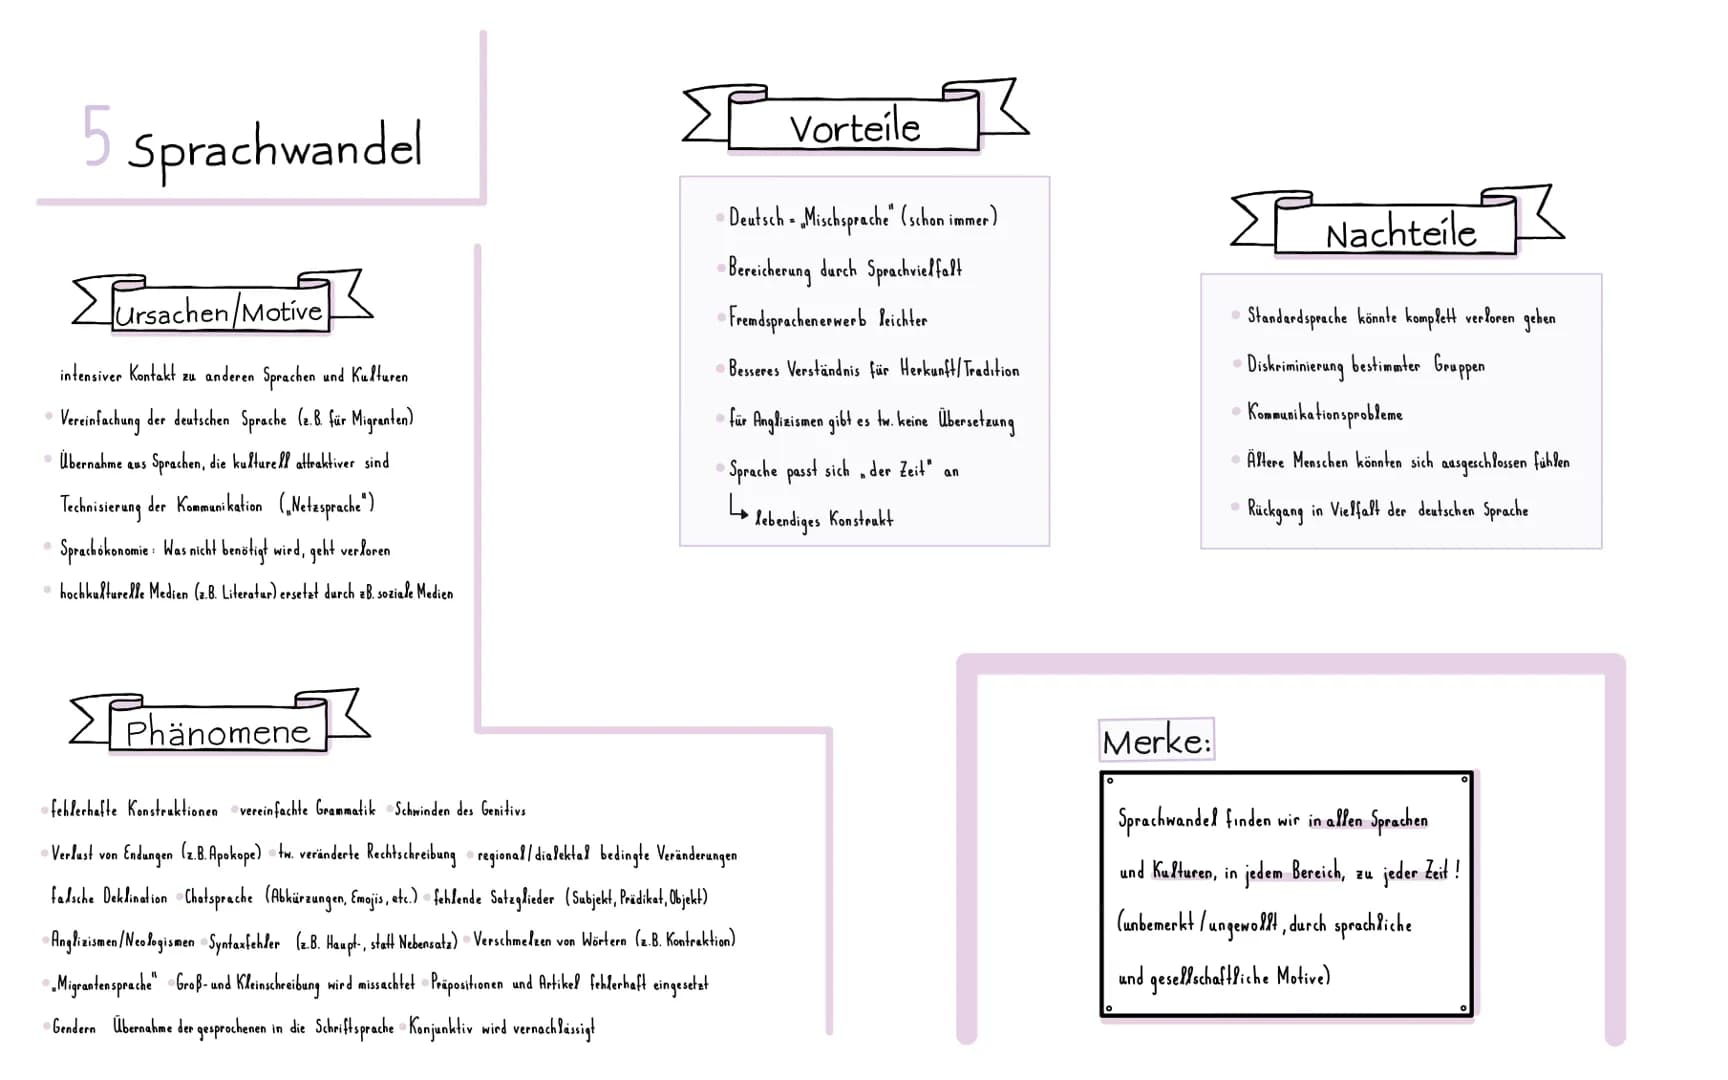 5 Sprachwandel
Ursachen/Motive
intensiver Kontakt zu anderen Sprachen und Kulturen
• Vereinfachung der deutschen Sprache (z.B. für Migranten)
• Übernahme aus Sprachen, die kulturell attraktiver sind
Technisierung der Kommunikation („Netzsprache")
• Sprachökonomie: Was nicht benötigt wird, geht verloren
• hochkulturelle Medien (z.B. Literatur) ersetzt durch zB. soziale Medien
Phänomene
• fehlerhafte Konstruktionen • vereinfachte Grammatik • Schwinden des Genitivs
• Verlust von Endungen (z.B. Apokope) • tw. veränderte Rechtschreibung • regional/dialektal bedingte Veränderungen
falsche Deklination • Chatsprache (Abkürzungen, Emojis, etc.) • fehlende Satzglieder (Subjekt, Prädikat, Objekt)
• Anglizismen/Neologismen • Syntaxfehler (z.B. Haupt-, statt Nebensatz) • Verschmelzen von Wörtern (z.B. Kontraktion)
• „Migrantensprache" • Groß- und Kleinschreibung wird missachtet • Präpositionen und Artikel fehlerhaft eingesetzt
• Gendern Übernahme der gesprochenen in die Schriftsprache • Konjunktiv wird vernachlässigt
Vorteile
• Deutsch = „Mischsprache" (schon immer)
• Bereicherung durch Sprachvielfalt
• Fremdsprachenerwerb leichter
• Besseres Verständnis für Herkunft/Tradition
• für Anglizismen gibt es tw. keine Übersetzung
• Sprache passt sich „der Zeit" an
↳ lebendiges Konstrukt
Nachteile
• Standardsprache könnte komplett verloren gehen
• Diskriminierung bestimmter Gruppen
• Kommunikationsprobleme
• Ältere Menschen könnten sich ausgeschlossen fühlen
• Rückgang in Vielfalt der deutschen Sprache
Merke:
Sprachwandel finden wir in allen Sprachen
und Kulturen, in jedem Bereich, zu jeder Zeit!
(unbemerkt/ungewollt, durch sprachliche
und gesellschaftliche Motive)